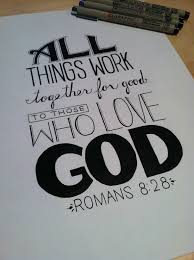 ALL
THINGS WORK
together for good
TO THOSE
WHO LOVE
GOD
ROMANS 8:28